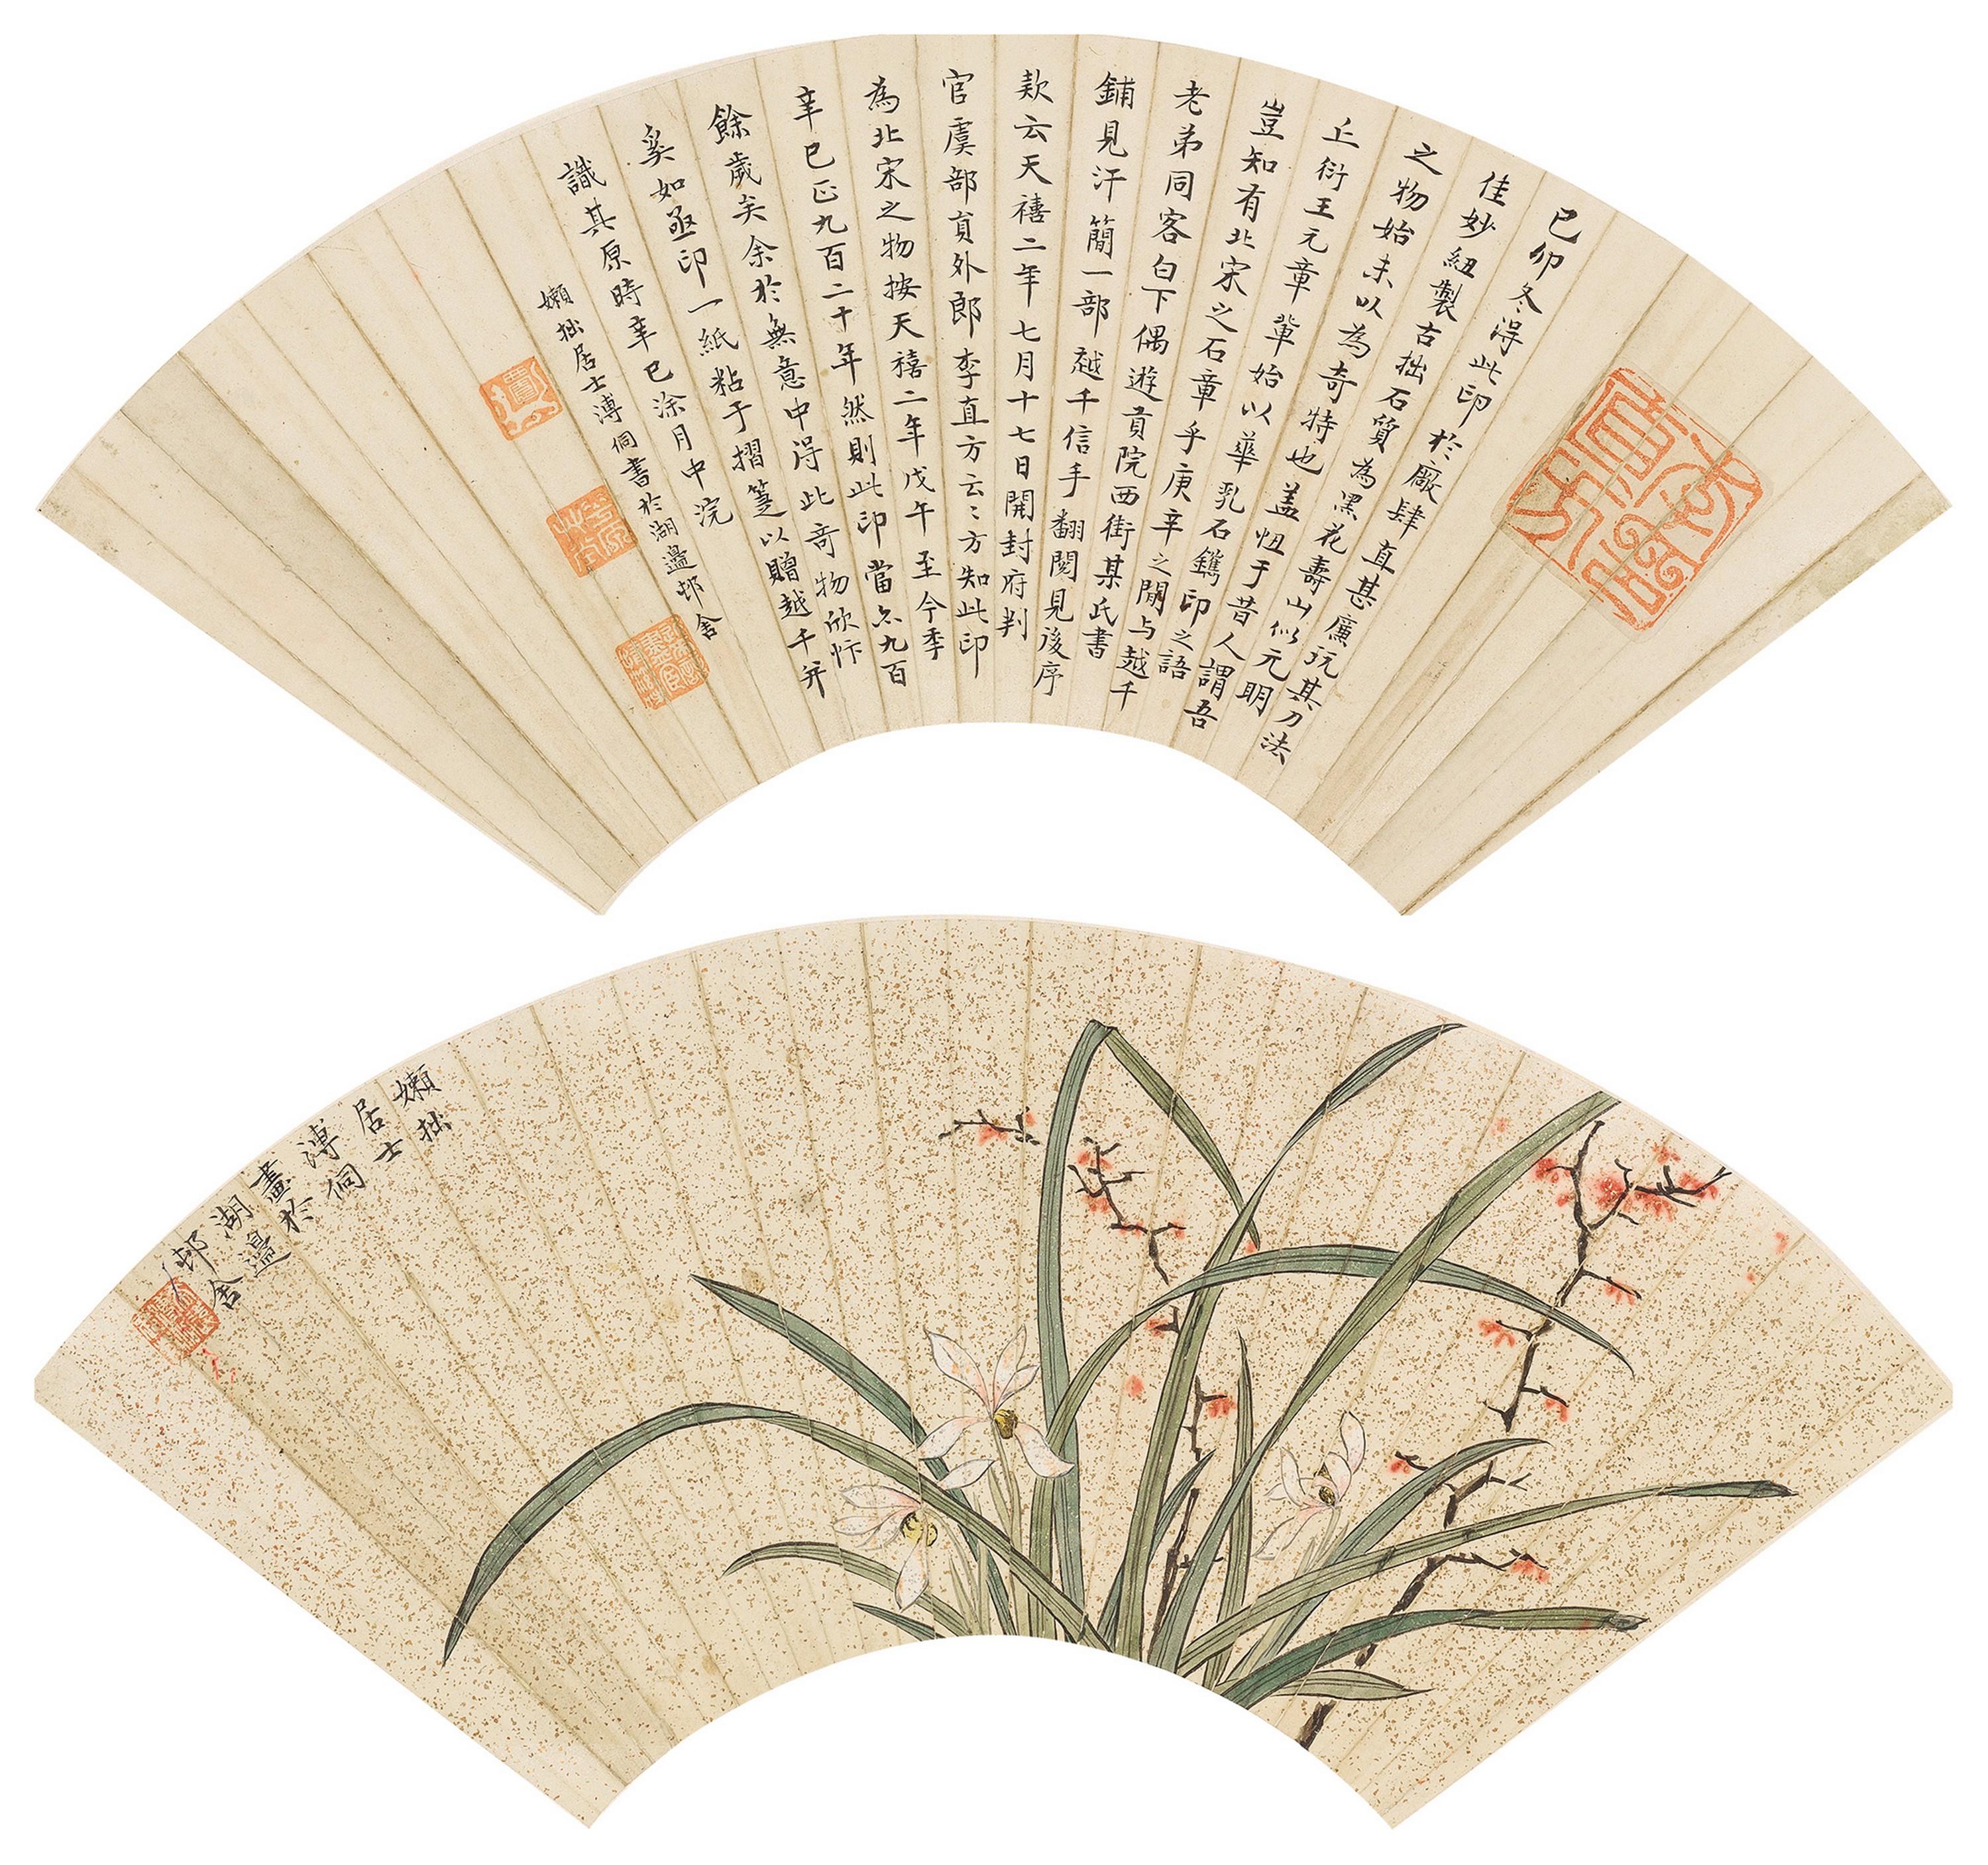 己卯冬淂此印於廠肆直甚廉玩其刀法
佳妙紐製古拙石質為黑花壽山似元明
之物始未以為奇特也盖忸于昔人謂吾
丘衍王元章軰始以華乳石鐫印之語
豈知有北宋之石章乎庚辛之閒与越千
老弟同客白下偶遊貢院西街某氏書
鋪見汗簡一部越千信手翻閱見後序
欵云天禧二年七月十七日開封府判
官虞部員外郎李直方云〻方知此印
為北宋之物按天禧二年戊午至今季
辛巳正九百二十年然則此印當亦九百
餘歲矣余於無意中淂此奇物欣忭
奚如亟印一紙粘于摺箑以贈越千并
識其原時辛巳涂月中浣
嬾拙居士溥侗書於湖邉邨舍
嬾拙
居士
溥侗
畫於
湖邉
邨舍